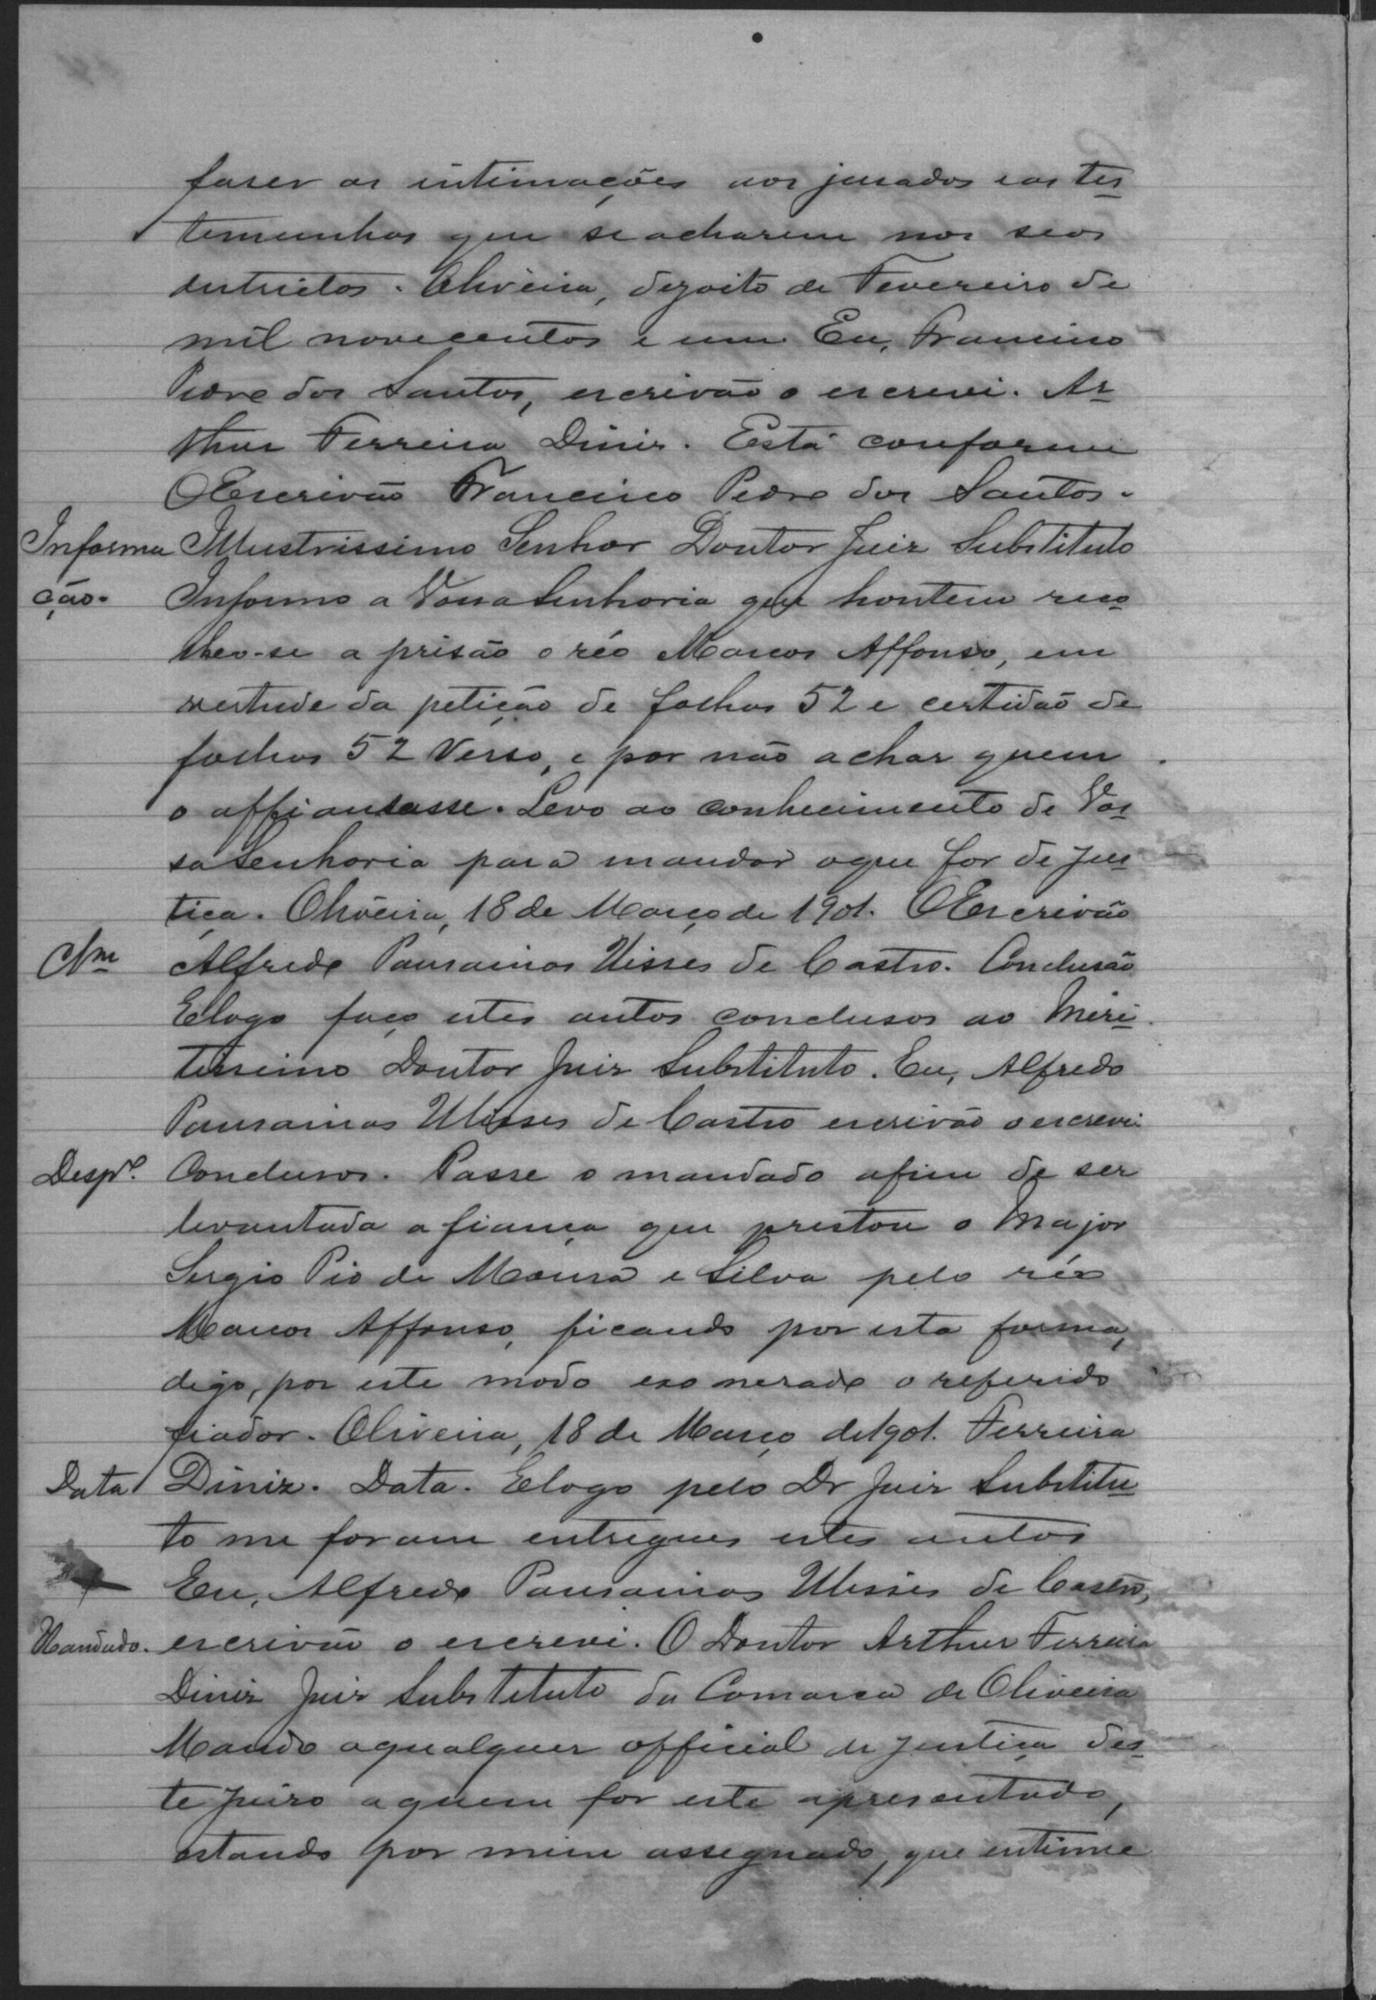 faser as intimações aos jurados e as tes
temunhas que se acharem nos seos
districtos. Oliveira, dezoito de Fevereiro de
mil novecentos e um. Eu, Francisco
Pedro dos Santos, escrivão o escrevi. Ar
thur Ferreira Diniz. Está conforme
O Escrivão Francisco Pedro dos Santos.
Informa Illustrissimo Senhor Doutor Juiz Substituto
ção. Informo a Vossa Senhoria que hontem reco
lheo-se a prisão o réo Marcos Affonso, em
vertude da petição de folhas 52 e certidão de
folhas 52 Verso, e por não achar quem
o affiansasse. Levo ao conhecimento de Vos
sa Senhoria para mandar o que for de jus
tiça. Oliveira, 18 de Março de 1901. O Escrivão
Clm Alfredo Pausanias Ulisses de Castro. Conclusão
E logo faço estes autos conclusos ao Meri
tissimo Doutor Juiz Substituto. Eu, Alfredo
Pausanias Ulisses de Castro escrivão o escrevi
Desp.o Conclusos. Passe o mandado afim de ser
levantada a fiança que prestou o Major
Sergio Pio de Moura e Silva pelo réo
Marcos Affonso, ficando por esta forma,
digo, por este modo exonerado o referido
fiador. Oliveira, 18 de Março de 1901. Ferreira
Data Diniz. Data. E logo pelo Dr Juiz Substitu
to me foram entregues estes autos
Eu, Alfredo Pausanias Ulisses de Castro,
Mandado. escrivão o escrevi. O Doutor Arthur Ferreira
Diniz Juiz Substituto da Comarca de Oliveira
Mando a qualquer official de justiça des
te Juizo a quem for este apresentado,
estando por mim assegnado, que intime